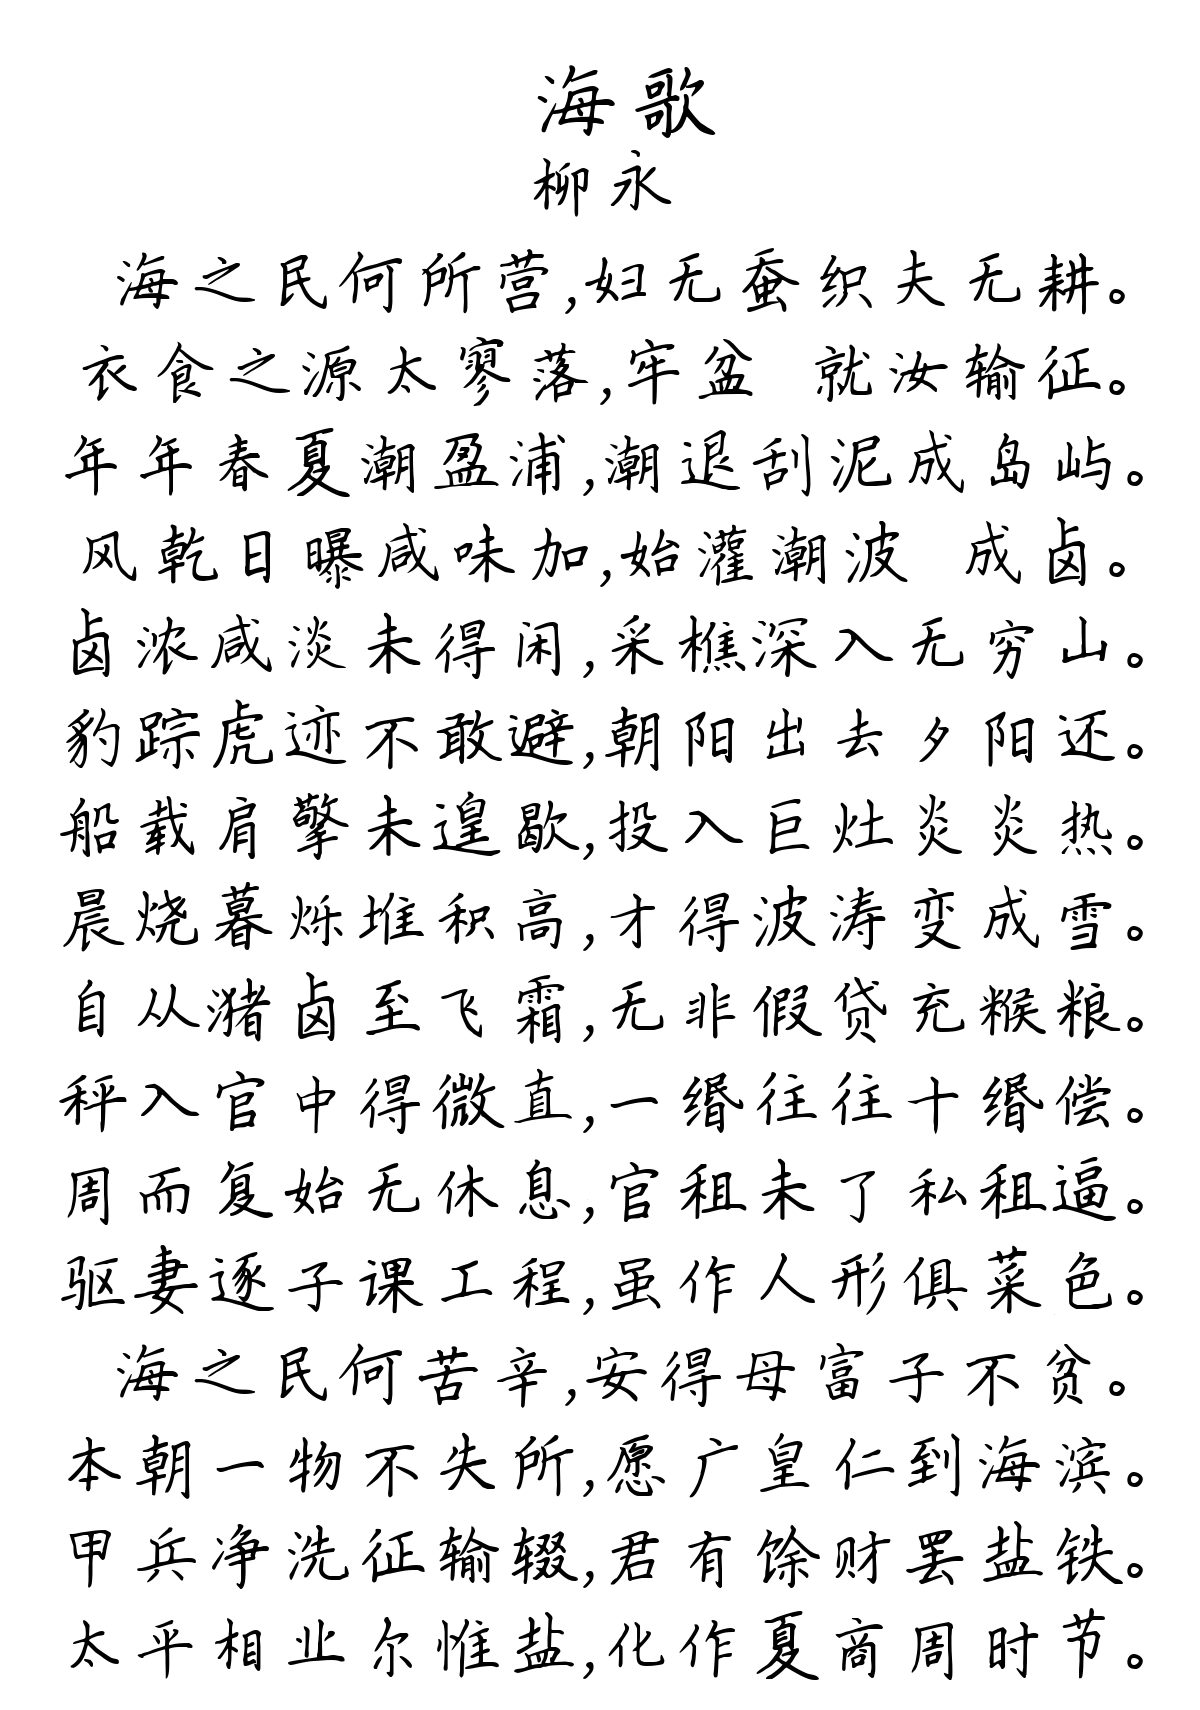 海歌
柳永
海之民何所营,妇无蚕织夫无耕。
衣食之源太寥落,牢盆 就汝输征。
年年春夏潮盈浦,潮退刮泥成岛屿。
风乾日曝咸味加,始灌潮波 成卤。
卤浓咸淡未得闲,采樵深入无穷山。
豹踪虎迹不敢避,朝阳出去夕阳还。
船载肩擎未遑歇,投入巨灶炎炎热。
晨烧暮烁堆积高,才得波涛变成雪。
自从潴卤至飞霜,无非假贷充糇粮。
秤入官中得微直,一缗往往十缗偿。
周而复始无休息,官租未了私租逼。
驱妻逐子课工程,虽作人形俱菜色。
海之民何苦辛,安得母富子不贫。
本朝一物不失所,愿广皇仁到海滨。
甲兵净洗征输辍,君有馀财罢盐铁。
太平相业尔惟盐,化作夏商周时节。